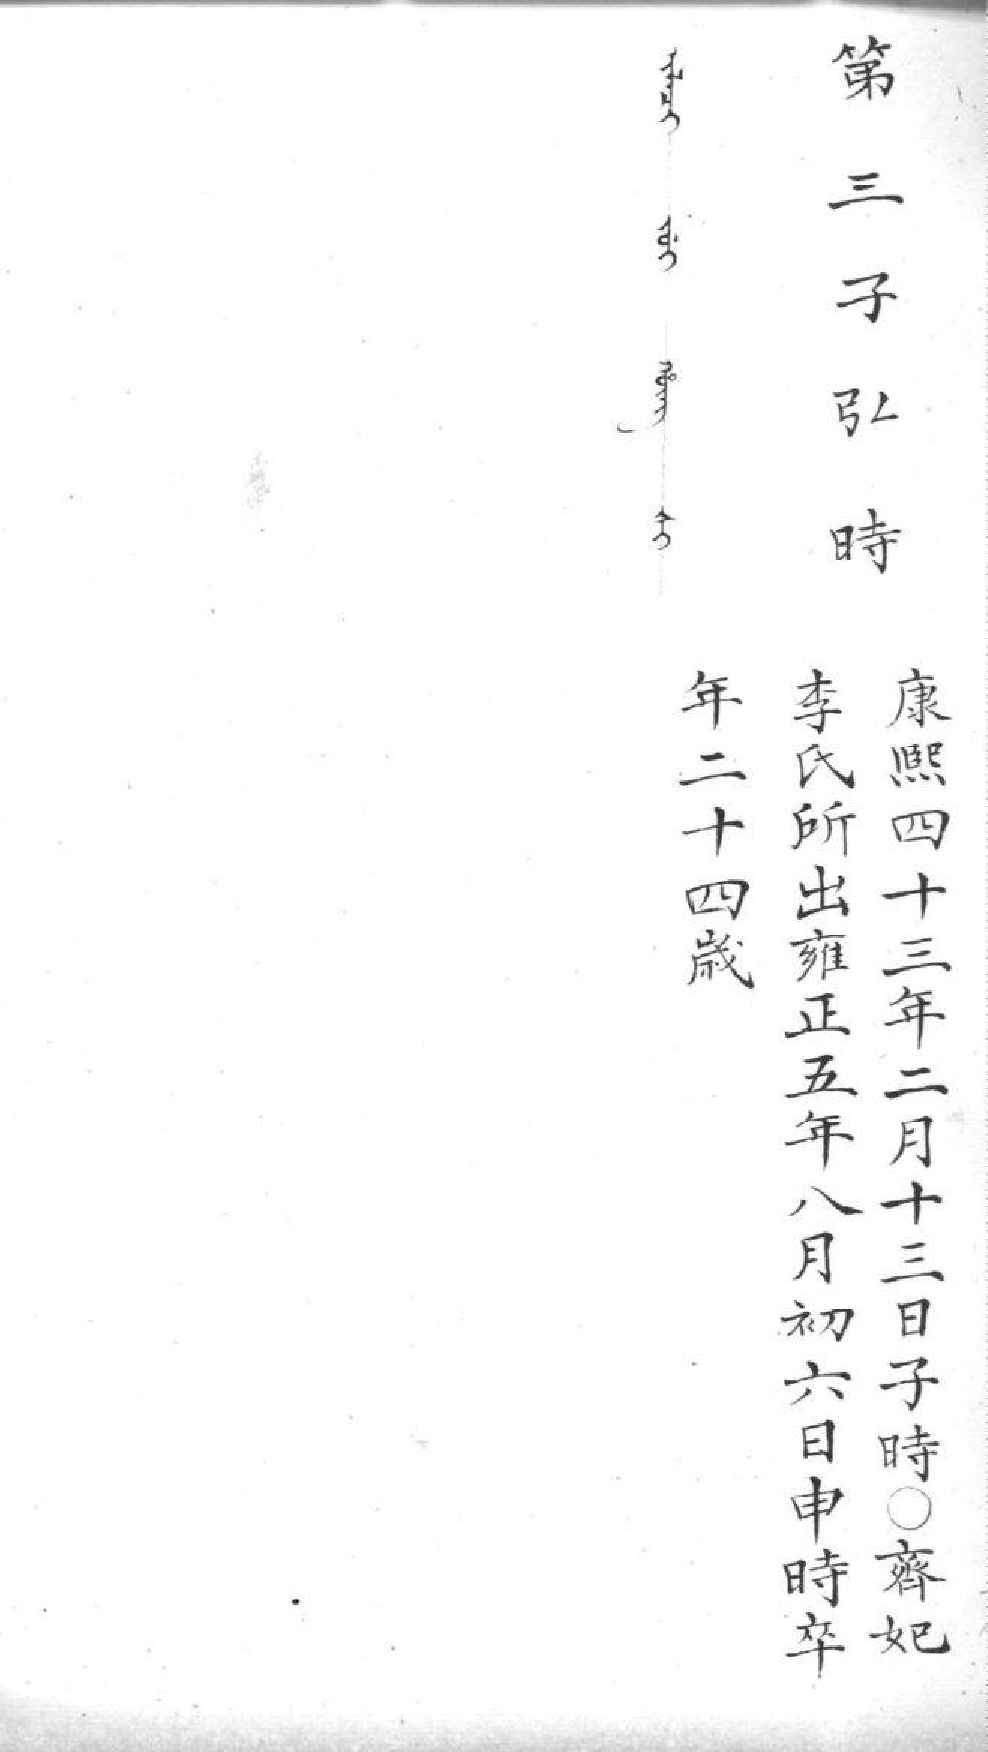 第三子弘時
康熙四十三年二月十三日子時〇齊妃
李氏所出雍正五年八月初六日申時卒
年二十四歲